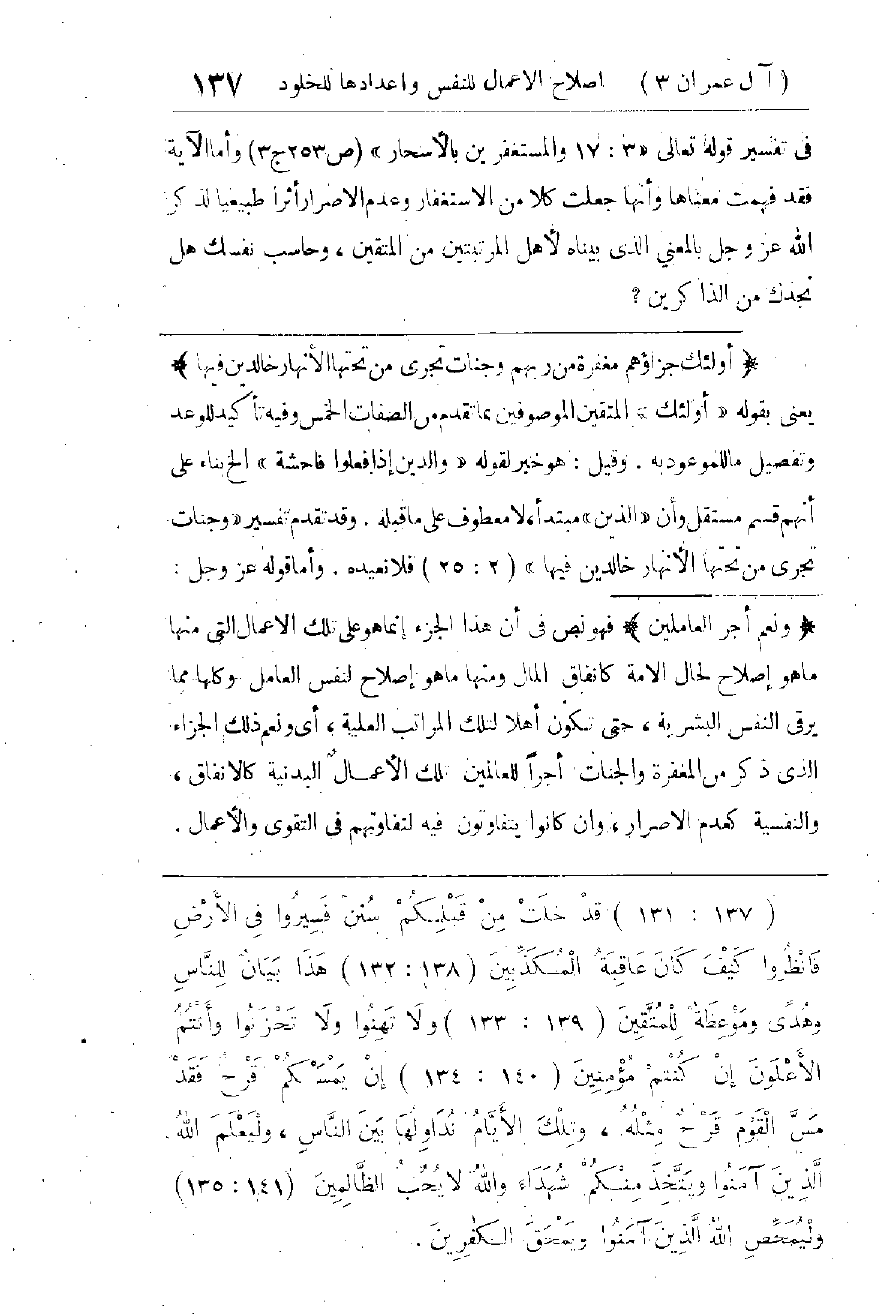 ( آل عمران ٣ ) اصلاح الاعمال للنفس واعدادها للخلود ١٣٧
فى تفسير قوله تعالى « ٣ : ١٧ والمستغفرين بالأسحار » (ص٢٥٣ج٣) وأما الآية
فقد فهمت معناها وأنها جعلت كلا من الاستغفار وعدم الاصرار أثرا طبيعيا لذكر
الله عز وجل بالمعني الذى بيناه لأهل المرتبتين من المتقين ، وحاسب نفسك هل
نجدك من الذاكرين ؟
﴿ أولئك جزاؤهم مغفرة من ربهم وجنات تجرى من تحتها الأنهار خالدين فيها ﴾
يعنى بقوله « أولئك » المتقين الموصوفين بما تقدم من الصفات الخمس وفيه تأكيد للوعد
وتفصيل ما للموعود به . وقيل : هو خبر لقوله « والذين إذا فعلوا فاحشة » الخ بناء على
أنهم قسم مستقل وأن «الذين» مبتدأ ، لا معطوف على ما قبله . وقد تقدم تفسير «وجنات
تجرى من تحتها الأنهار خالدين فيها » ( ٢ : ٢٥ ) فلا نعيده . وأما قوله عز وجل :
﴿ ونعم أجر العاملين ﴾ فهو نص فى أن هذا الجزء إنما هو على تلك الاعمال التى منها
ما هو إصلاح لحال الامة كانفاق المال ومنها ما هو إصلاح لنفس العامل وكلها مما
يرقى النفس البشرية ، حتى تكون أهلا لتلك المراتب العلية ، أى ونعم ذلك الجزاء
الذى ذكر من المغفرة والجنات أجراً للعالمين تلك الأعمال البدنية كالانفاق ،
والنفسية كعدم الاصرار ، وان كانوا يتفاوتون فيه لتفاوتهم فى التقوى والأعمال .
( ١٣٧ : ١٣١ ) قَدْ خَلَتْ مِنْ قَبْلِكُمْ سُنَنٌ فَسِيرُوا فِى الأَرْضِ
فَانْظُرُوا كَيْفَ كَانَ عَاقِبَةُ الْمُكَذِّبِينَ ( ١٣٨ : ١٣٢ ) هَذَا بَيَانٌ لِلنَّاسِ
وهُدًى ومَوْعِظَةٌ لِلْمُتَّقِينَ ( ١٣٩ : ١٣٣ ) ولَا تَهِنُوا ولَا تَحْزَنُوا وأَنْتُمُ
الأَعْلَوْنَ إنْ كُنْتُمْ مُؤْمِنِينَ ( ١٤٠ : ١٣٤ ) إنْ يَمْسَسْكُمْ قَرْحٌ فَقَدْ
مَسَّ الْقَوْمَ قَرْحٌ مِثْلُهُ ، وتِلْكَ الأَيَّامُ نُدَاوِلُهَا بَيْنَ النَّاسِ ، ولِيَعْلَمَ اللهُ
الَّذِينَ آمَنُوا ويَتَّخِذَ مِنْكُمْ شُهَدَاءَ واللهُ لا يُحُبُّ الظَّالِمِينَ (١٤١ : ١٣٥)
ولِيُمَحِّصَ اللهُ الَّذِينَ آمَنُوا ويَمْحَقَ الْكَفِرِينَ .